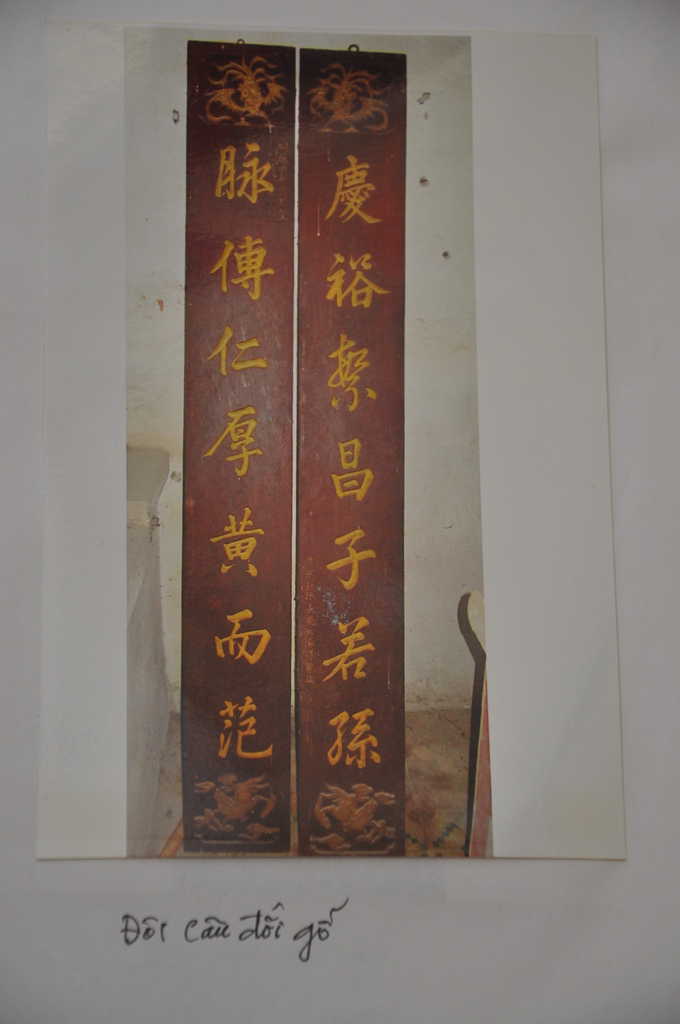 慶裕繁昌子若孫
脉傳仁厚黃而范
Đôi câu đối gỗ